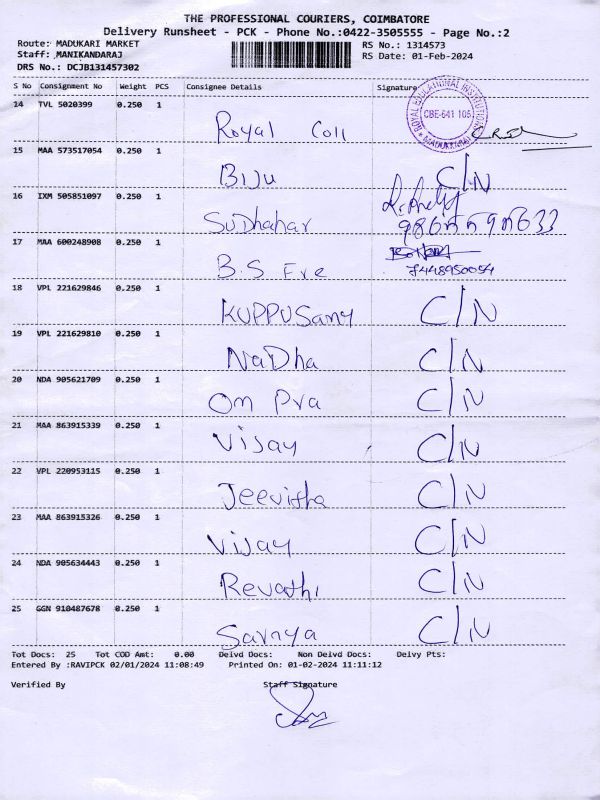 THE PROFESSIONAL COURIERS, COIMBATORE
Delivery Runsheet - PCK - Phone No.:0422-3505555 - Page No.:2
Route: MADUKARI MARKET
RS No.: 1314573
Staff: MANIKANDARAJ
RS Date: 01-Feb-2024
DRS No.: DCJB131457302
S No Consignment No Weight PCS Consignee Details Signature
14 TVL 5020399 0.250 1 Royal Coll
ROYAL EDUCATIONAL INSTITUTIONS
CBE-641 105
15 MAA 573517054 0.250 1 Biju C/N
16 IXM 505851097 0.250 1 SuDhahar
17 MAA 600248908 0.250 1 B.S Eve
7448950054
18 VPL 221629846 0.250 1 KUPPUSamy C/N
19 VPL 221629810 0.250 1 NaDha C/N
20 NDA 905621709 0.250 1 Om Pra C/N
21 MAA 863915339 0.250 1 Vijay C/N
22 VPL 220953115 0.250 1 Jeevitha C/N
23 MAA 863915326 0.250 1 Vijay C/N
24 NDA 905634443 0.250 1 Revathi C/N
25 GGN 910487678 0.250 1 Sarnya C/N
Tot Docs: 25 Tot COD Amt: 0.00 Delvd Docs: Non Delvd Docs: Delvy Pts:
Entered By :RAVIPCK 02/01/2024 11:08:49 Printed On: 01-02-2024 11:11:12
Verified By Staff Signature